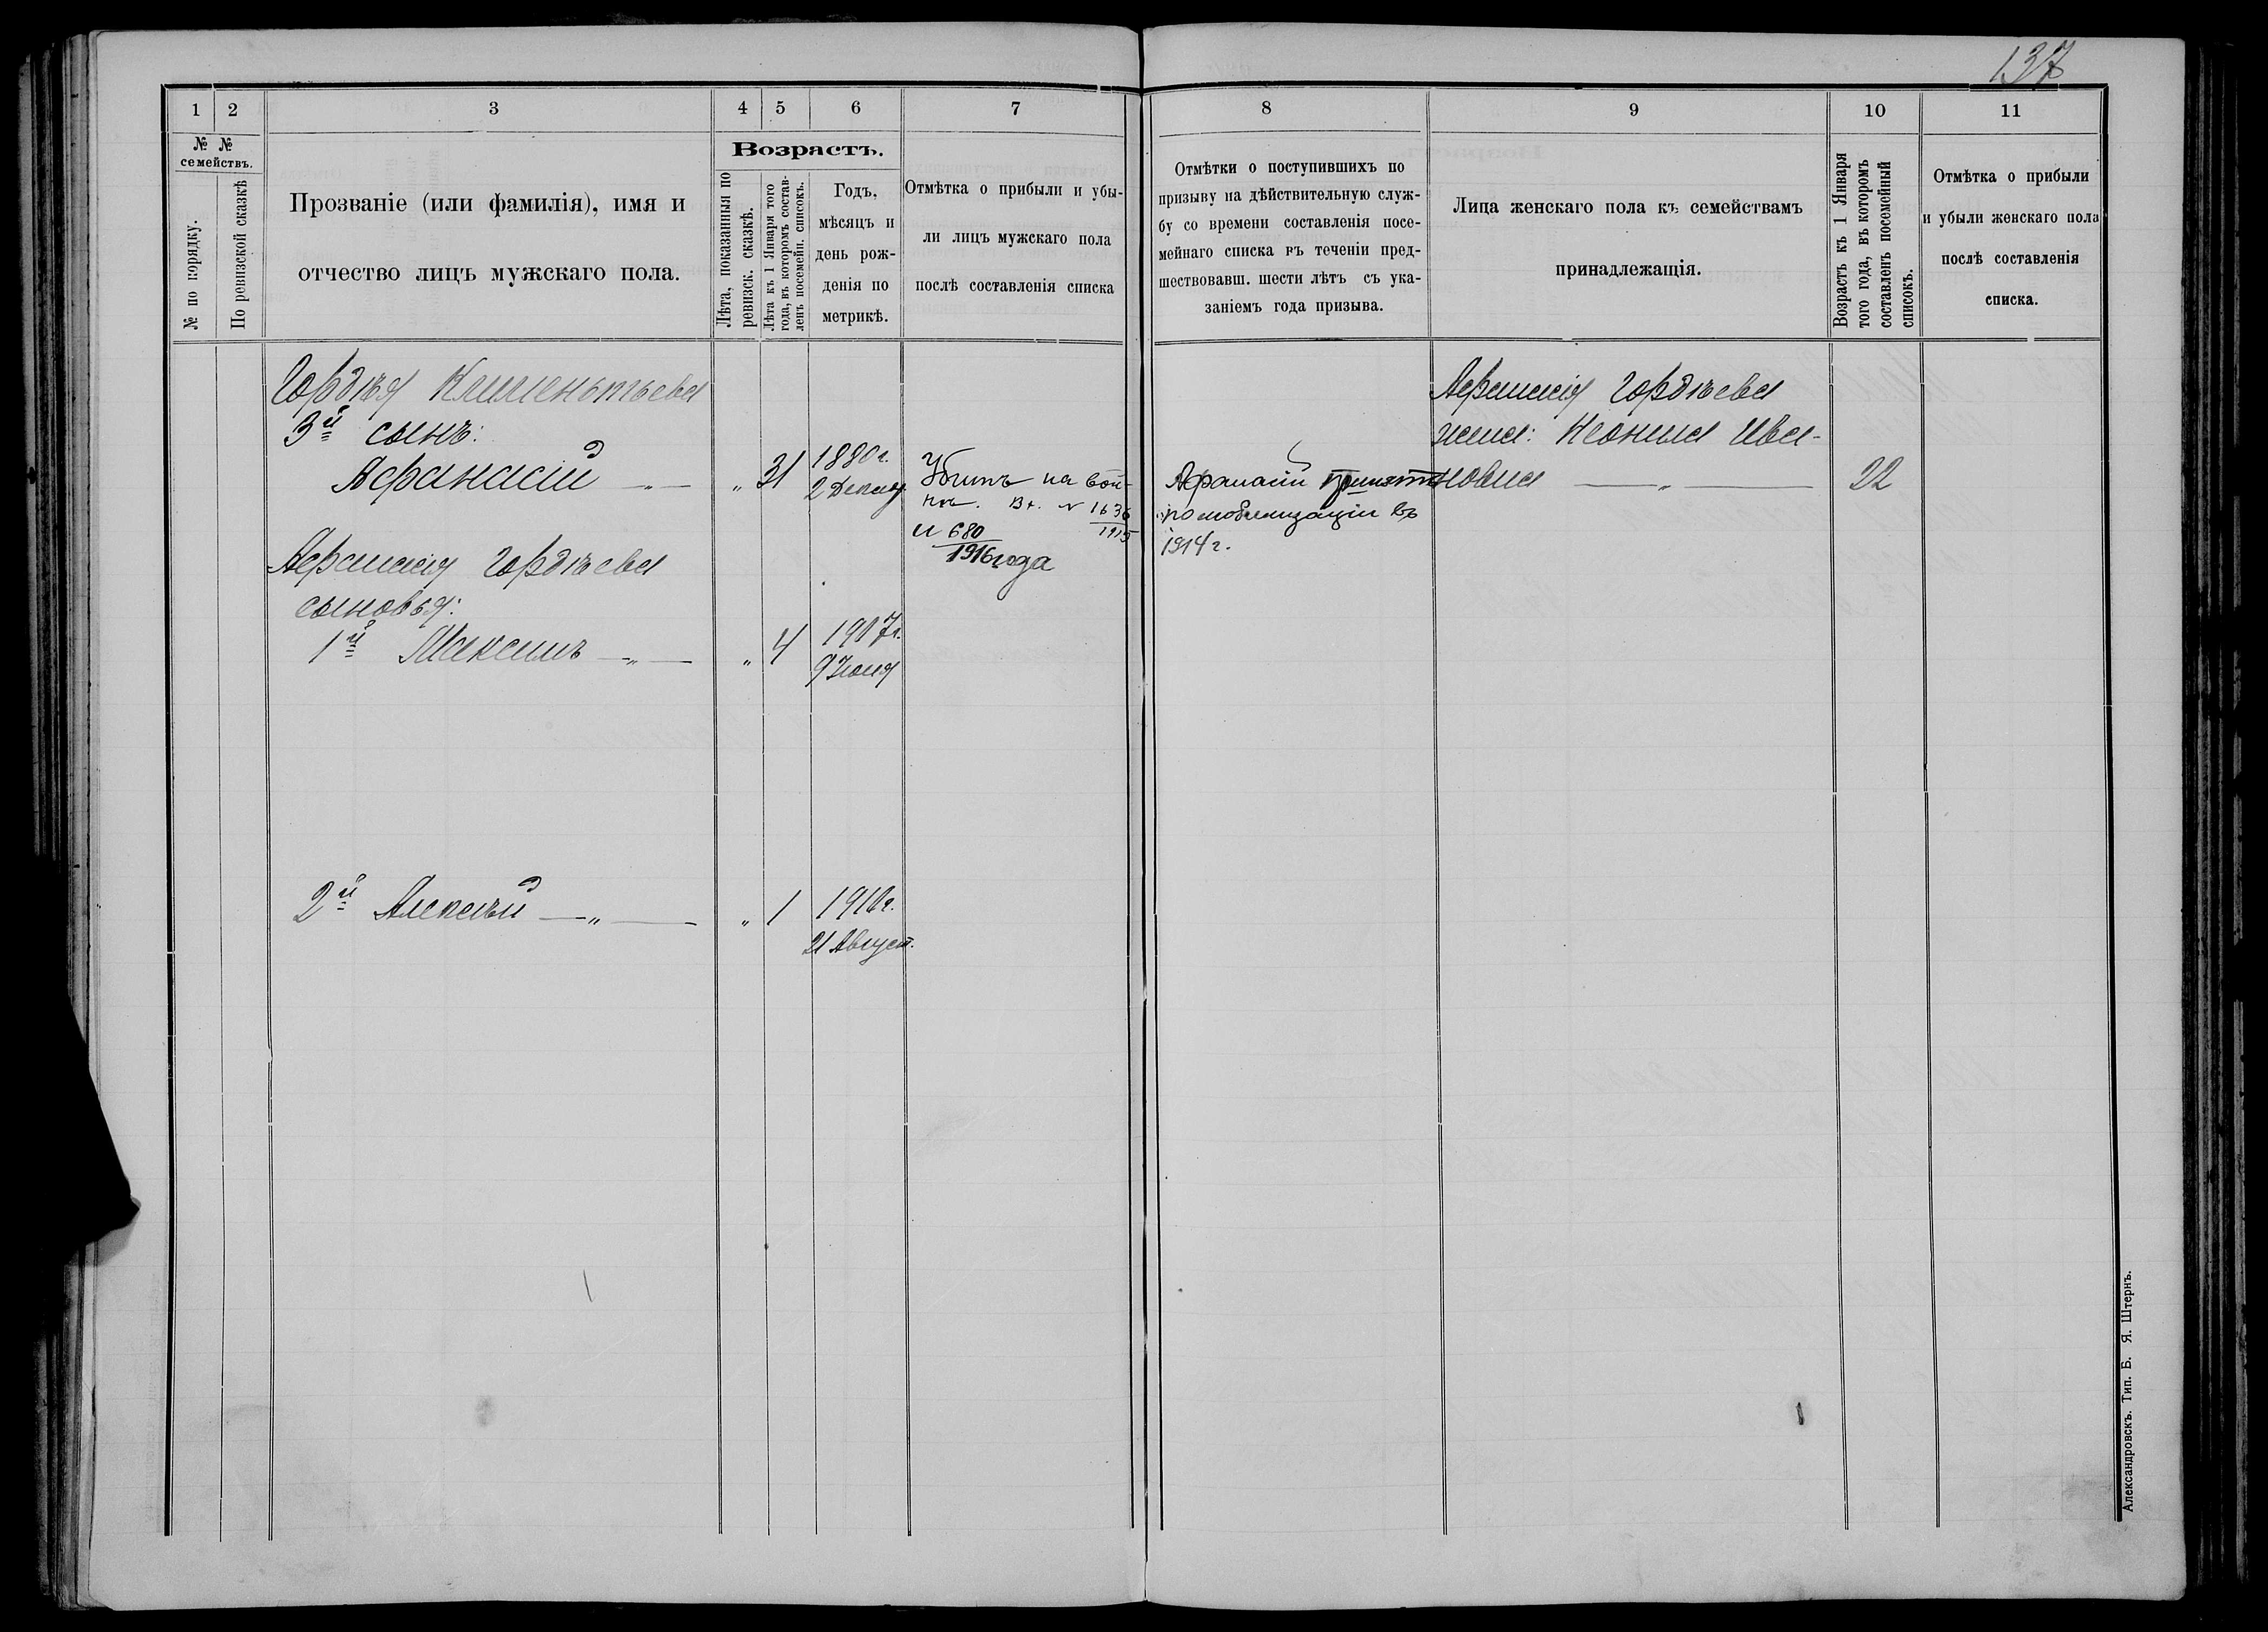 137
1
2
3
4
5
6
7
8
9
10
11
№ №
семействъ.
№ по порядку.
По ревизской сказкѣ
Прозваніе (или фамилія), имя и
отчество лицъ мужскаго пола.
Возрастъ.
Лѣта, показанныя по
ревизск. сказкѣ.
Лѣта къ 1 Января того
года, въ которомъ состав-
ленъ посемейн. списокъ.
Годъ,
мѣсяцъ и
день рож-
денія по
метрикѣ.
Отмѣтка о прибыли и убы-
ли лицъ мужскаго пола
послѣ составленія списка
Отмѣтки о поступившихъ по
призыву на дѣйствительную служ-
бу со времени составленія посе-
мейнаго списка въ теченіи пред-
шествовавш. шести лѣтъ съ ука-
заніемъ года призыва.
Лица женскаго пола къ семействамъ
принадлежащія.
Возрастъ къ 1 Января
того года, въ которомъ
составленъ посемейный
списокъ.
Отмѣтка о прибыли
и убыли женскаго пола
послѣ составленія
списка.
Гордѣя Климентьева
3й сынъ:
Афанасій — „ — „ 31 1880 г.
2 Декаб.
Убитъ на вой-
нѣ. Вх. № 1636
1915
и 680
1916 года
Афанасій принятъ
по мобилизаціи въ
1914 г.
Афанасія Гордѣева
жена: Неонила Ива-
новна — „ — 22
Афанасія Гордѣева
сыновья:
1й Максимъ — „ — „ 4 1907 г.
9 Іюня
2й Алексѣй — „ — „ 1 1910 г.
21 Август.
Александровскъ. Тип. Б. Я. Штернъ.